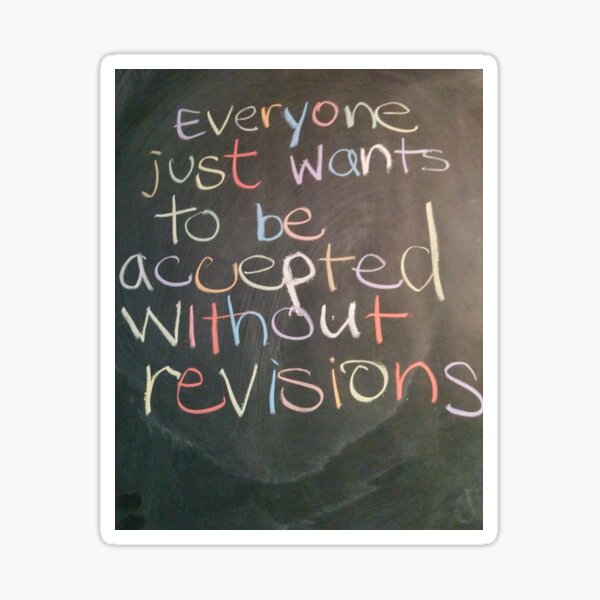 Everyone
just wants
to be
accepted
without
revisions